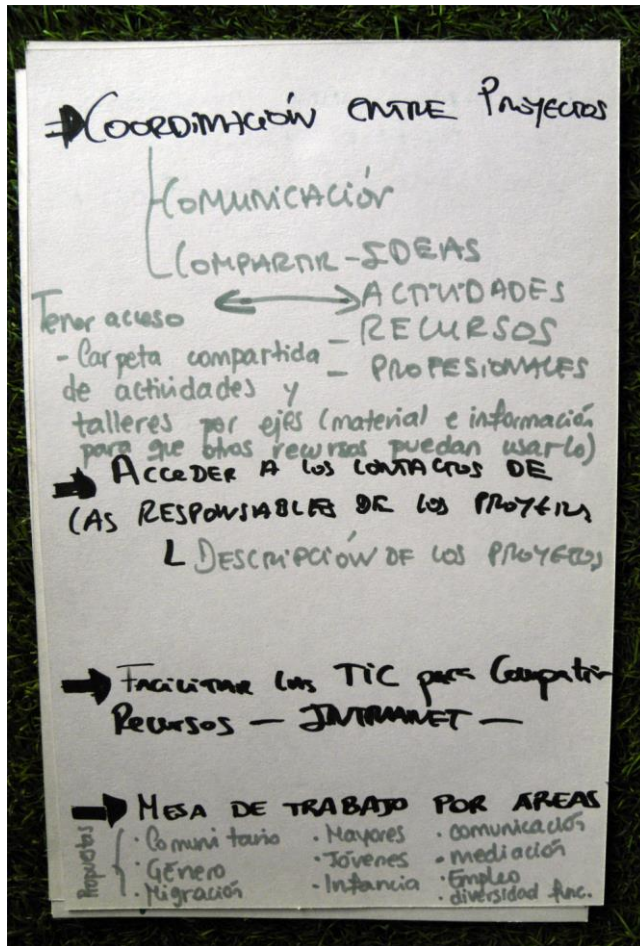 ➡ COORDINACIÓN ENTRE PROYECTOS
COMUNICACIÓN
COMPARTIR - IDEAS
ACTIVIDADES
- RECURSOS
- PROFESIONALES
Tener acceso
- Carpeta compartida
de actividades y
talleres por ejes (material e información
para que otros recursos puedan usarlo)
➡ ACCEDER A LOS CONTACTOS DE
LAS RESPONSABLES DE LOS PROYECTOS
DESCRIPCIÓN DE LOS PROYECTOS
➡ FACILITAR LAS TIC para Compartir
Recursos — INTRANET —
➡ MESA DE TRABAJO POR ÁREAS
Propuestas
· Comunitario · Mayores · comunicación
· Género · Jóvenes · mediación
· Migración · Infancia · Empleo
· diversidad func.